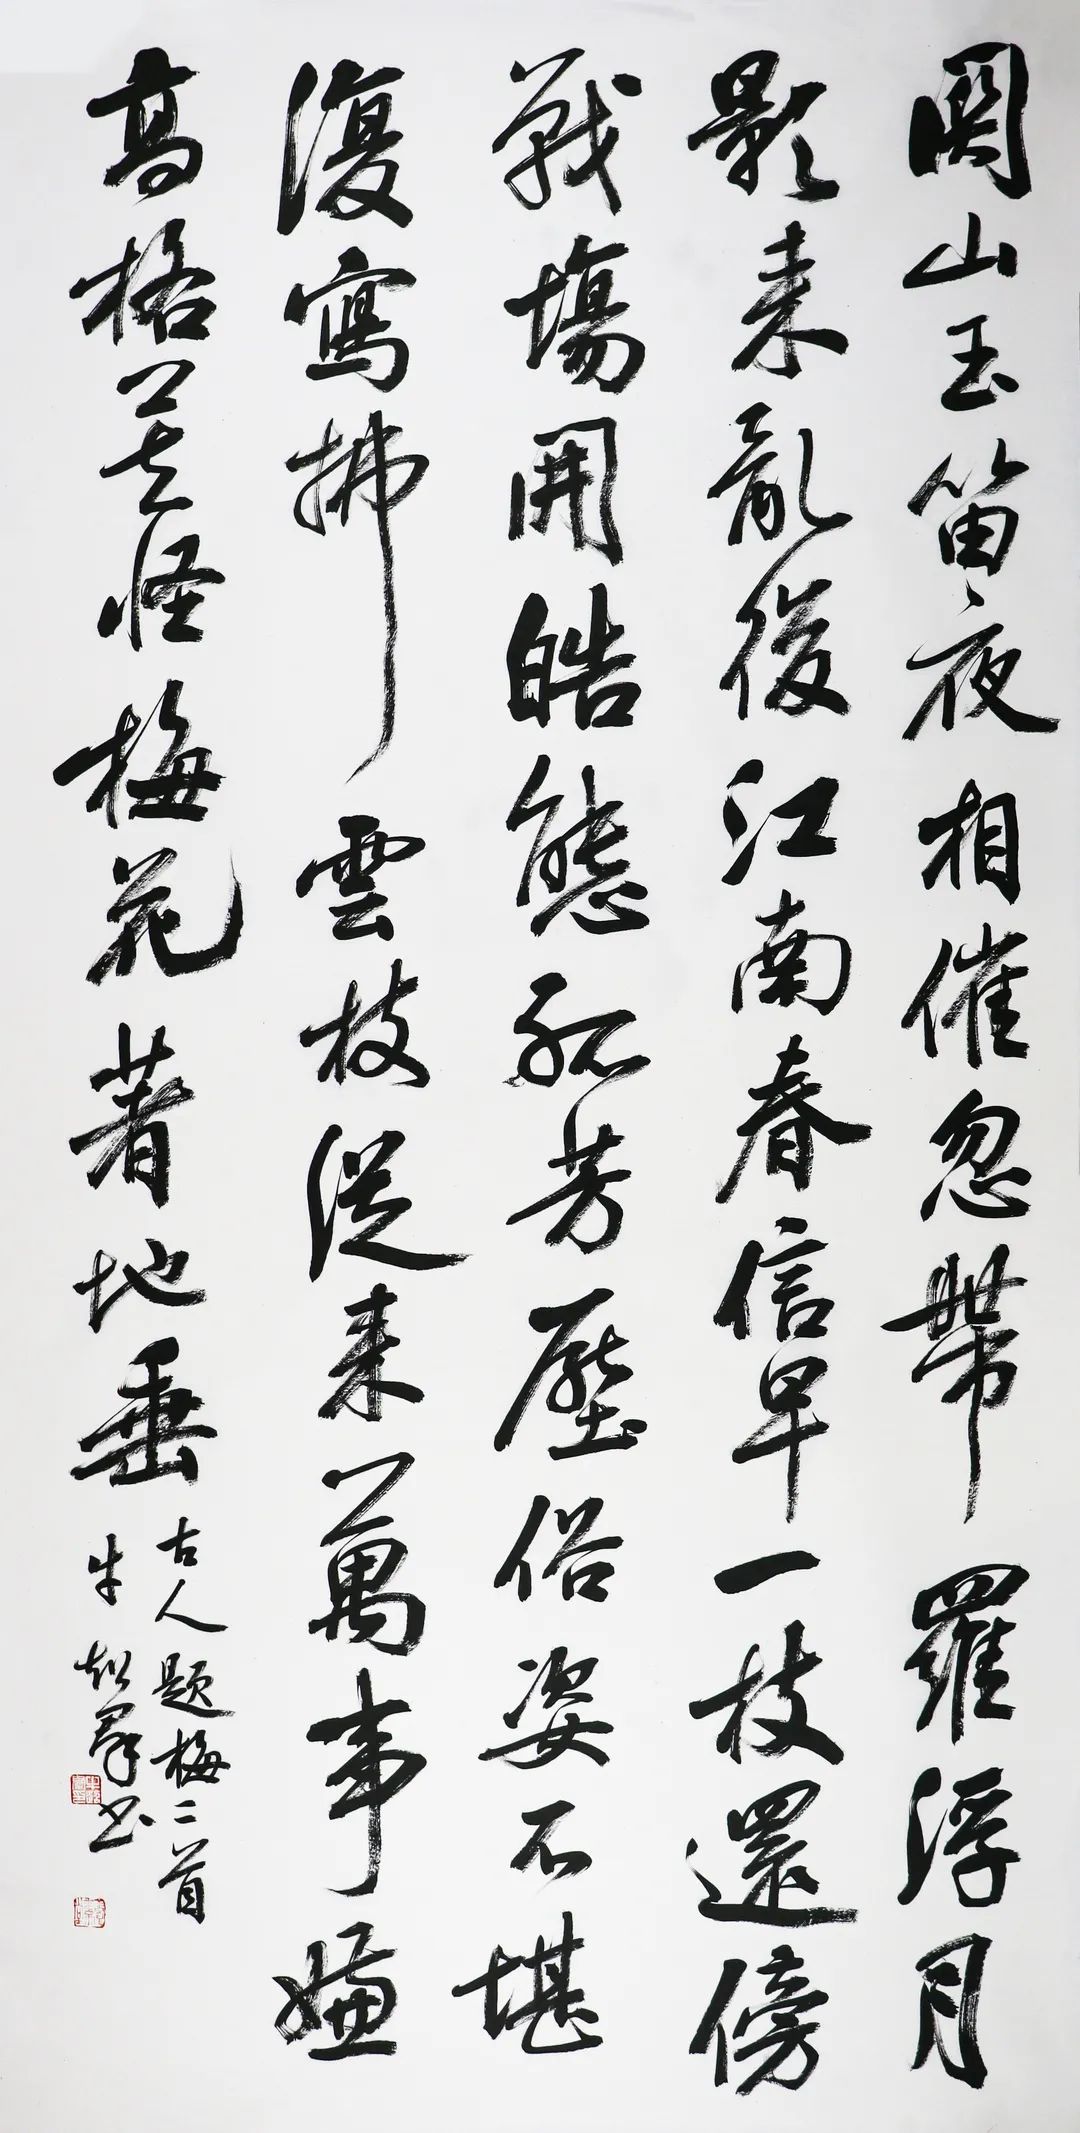 関山玉笛夜相催忽帶羅浮月
影来亂後江南春信早一枝還傍
戰場開皓態孤芳壓俗姿不堪
復寫拂雲枝從来萬事嫌
高格莫怪梅花著地垂
古人題梅二首
牛 群书